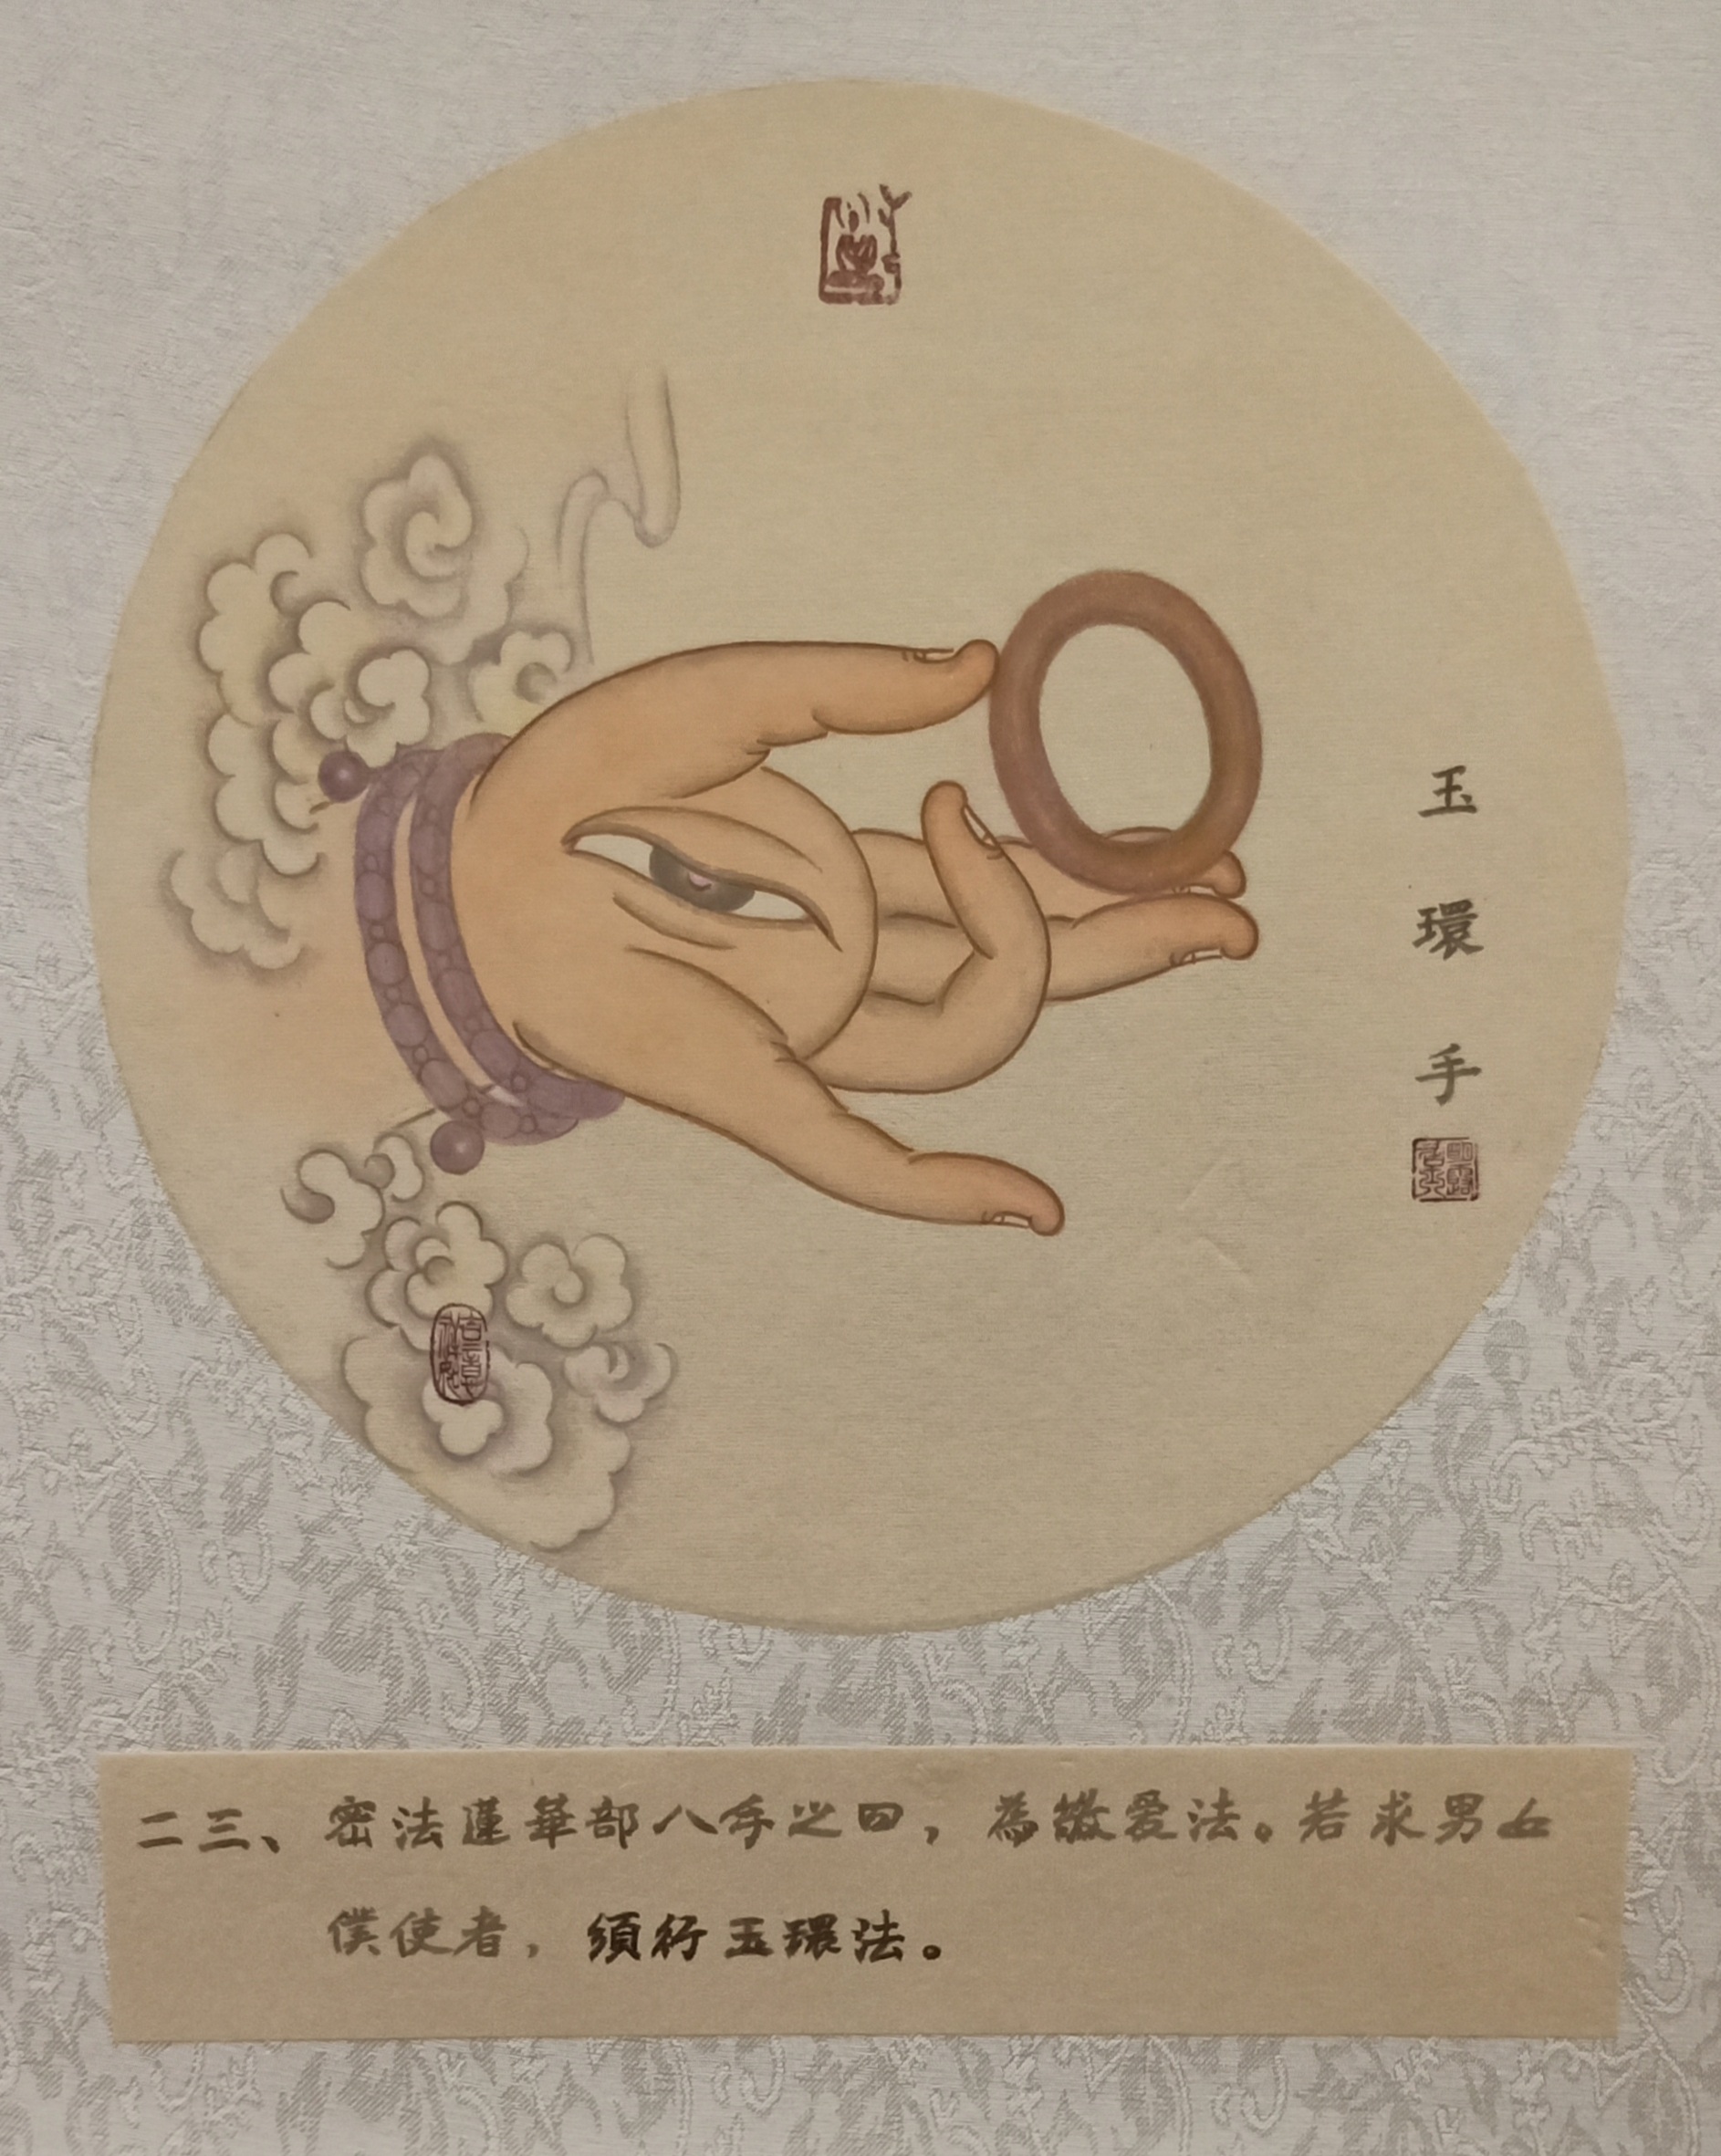 玉環手
二三、密法蓮華部八手之四，為敬愛法。若求男女
僕使者，須行玉環法。